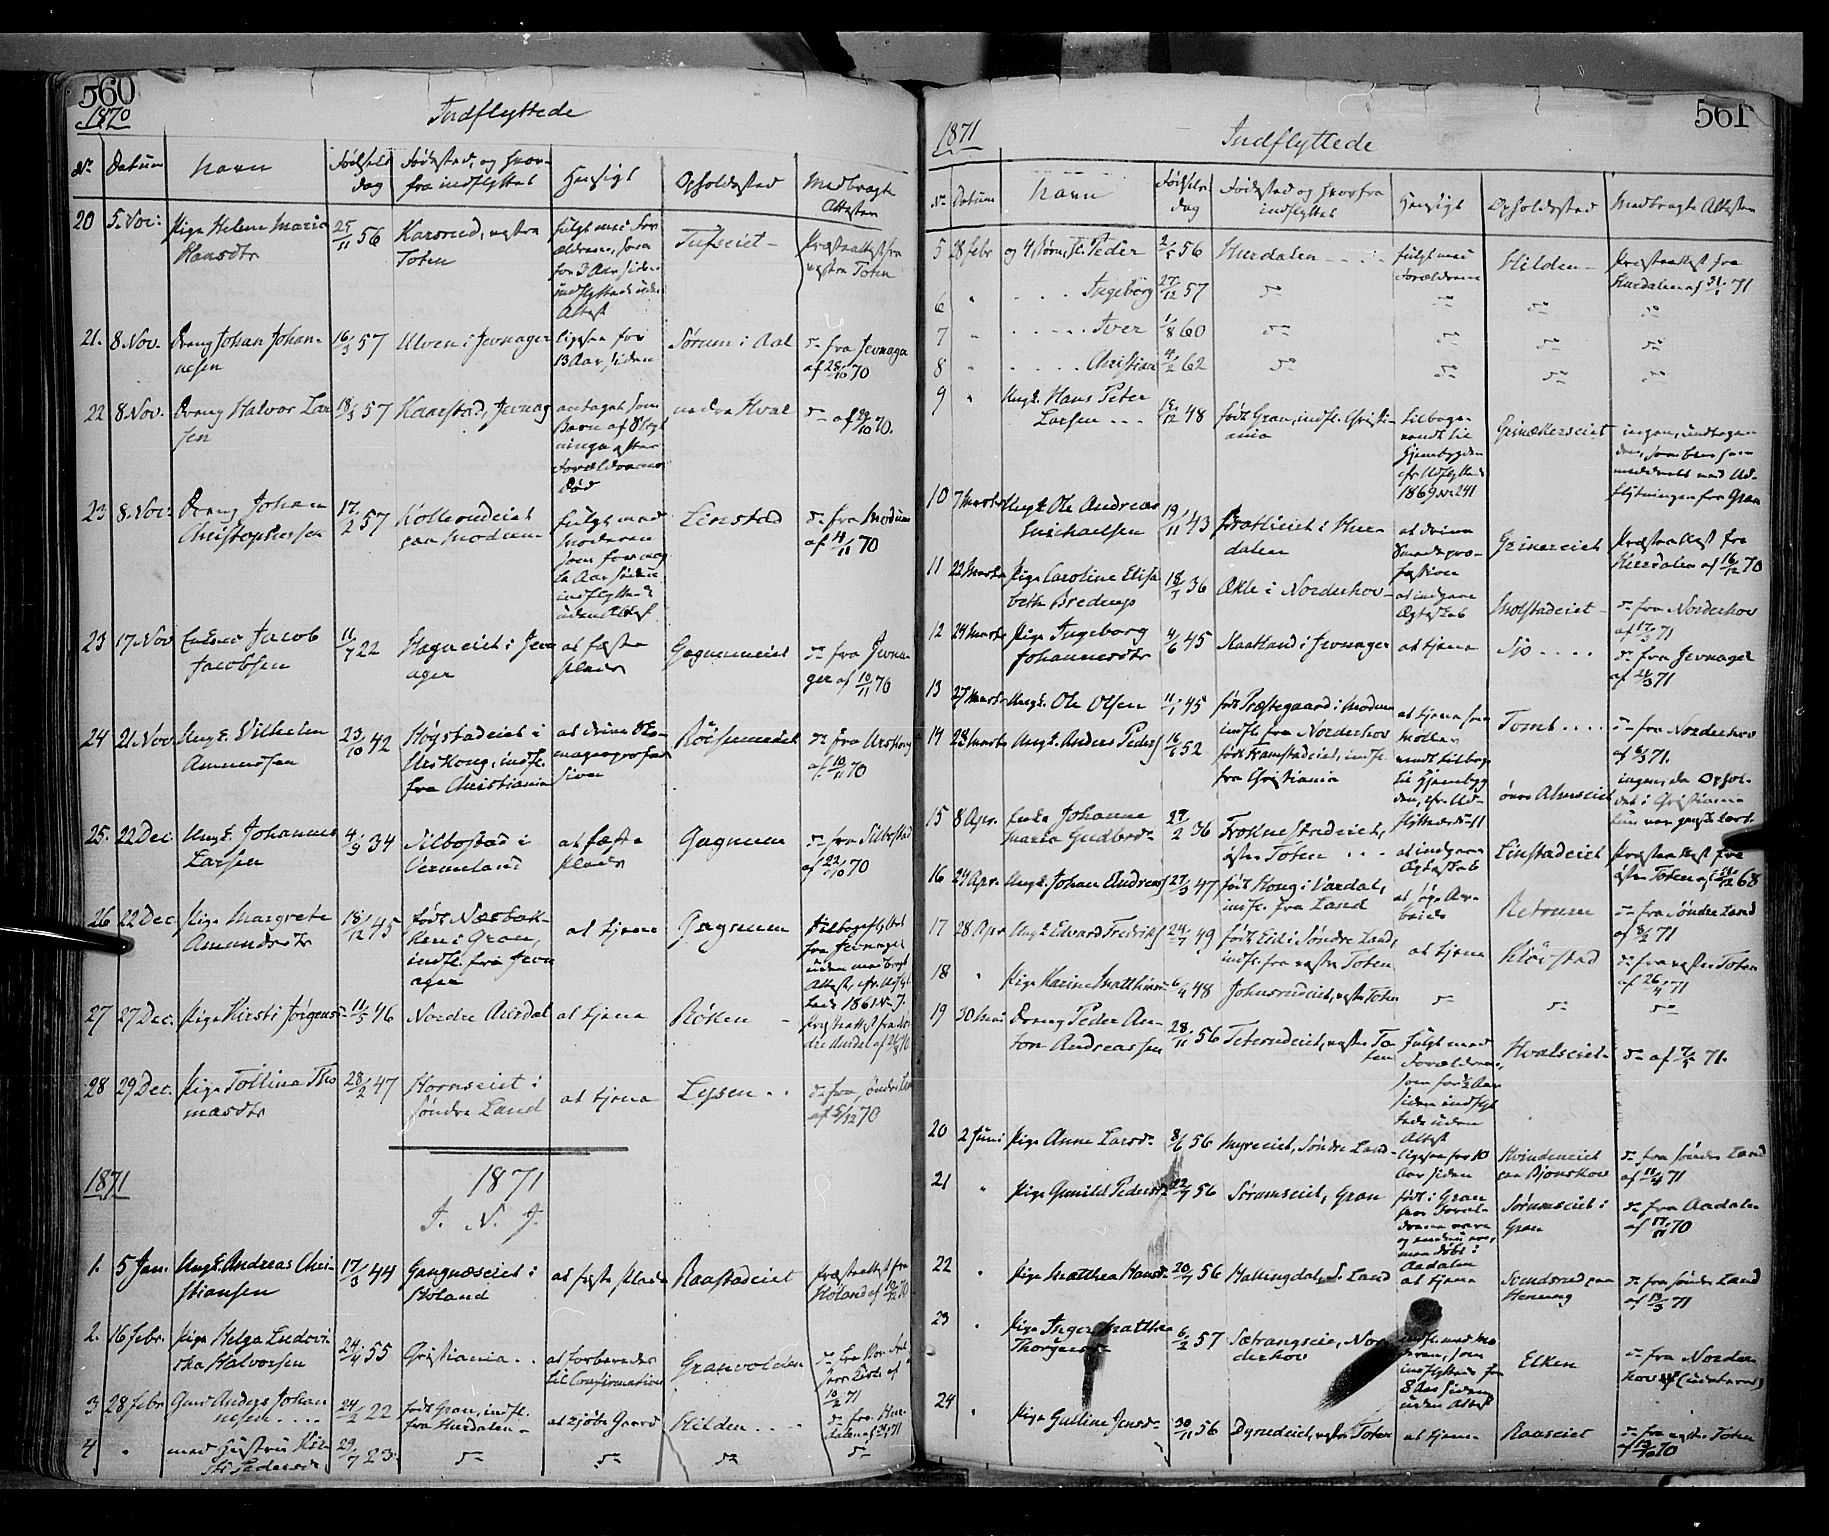 560
1870
Indflyttede
No Datum Navn Fødsels dag Fødested, og hvorfra indflyttet Hensigt Opholdssted Medbragte Attester
20 5. Nov: Pige Helene Maria Hansdtr 25/11 56 Karsrud, vestre Toten fulgt med Forældrene, som for 3 Aar siden indflyttede uden Attest Tufseiet Præsteattest fra vestre Toten
21. 8 Nov. Dreng Johan Johannesen 16/3 57 Ulven i Jevnager ligesaa for 13 Aar siden Sørum i Aal do fra Jevnager af 28/10 70
22 8 Nov. Dreng Halvor Larsen 18/3 57 Kaarstad, Jevnager antaget som Barn af Slægtninge efter Forældrenes Død nedre Hval do af 29/10 70.
23 8. Nov: Dreng Johan Christophersen 17/2 57 Kollerudeiet paa Modum fulgt med Moderen som for nogle Aar siden indflyttede uden Attest Linstad do fra Modum af 4/11 70
23 17. Nov Enkem. Jacob Jacobsen 11/7 22 Hagneiet i Jevnager at fæste Plads Gagnumeiet do fra Jevnager af 10/11 70
24 21. Nov Ungk. Vilhelm Amundsen 23/10 42 Høgstadeiet i Urskoug, indfl. fra Christiania at drive Skomagerprofession Røisumeiet do fra Urskoug af 10/11 70
25. 22 Dec. Ungk. Johannes Larsen 4/9 34 Silbostad i Vermeland at fæste Plads Gagnum do fra Silbostad af 22/10 70
26 22 Dec Pige Margrete Amundsdtr 18/12 45 født Næsbakken i Gran, indfl. fra Jevnager at tjene Gagnum tilbageflyttet fra Jevnager uden medbragt Attest, cfr. Udflyttede 1861 No 7.
27 27 Dec. Pige Kirsti Jørgensd 11/5 46 Nordre Aurdal at tjene Røken Præsteattest fra Nordre Aurdal af 21/8 70
28 29 Dec. Pige Tolline Thomasdtr 28/2 47 Hornseiet i Søndre Land at tjene Lyssen do fra Søndre Land af 5/12 70
1871
1871
J. N. J.
1. 5 Jan. Ungk. Andreas Christiansen 17/3 44 Gangnæseiet i Høland at fæste Plads Raastadeiet Præsteattest fra Høland af 10/12 70
2. 16 febr. Pige Helga Ludovika Halvorsen 24/4 55 Christiania at forberedes til Confirmation Granvolden
3 28 febr. Gmd Anders Johannesen 24/2 22 født Gran, indfl. fra Hurdalen at kjøbe Gaard Hilden do fra Hurdalen af 31/1 71
4 " med Hustru Kirsti Pedersd 29/7 23 do do do do
561
1871
Indflyttede
No Datum Navn Fødselsdag Fødested og hvorfra indflyttet Hensigt Opholdssted Medbragte Attester
5 28 febr og 4 Børn, ... Peder 2/5 56 Hurdalen fulgt med Forældrene Hilden Præsteattest fra Hurdalen af 31/1 71
6 " Ingeborg 27/12 57 do do do do
7 " Iver 1/8 60 do do do do
8 " Christian 4/2 62 do do do do
9 " Ungk. Hans Peter Larsen 12/12 48 født Gran, indfl. Christiania tilbagevendt til Hjembygden cfr. Udflyttede 1869 No 241 Grinækerseiet ingen, undtagen den, som blev ham meddeelt ved Udflytningen fra Gran
10 7 Marts Ungk. Ole Andreas Michaelsen 19/11 43 i Hurdalen at drive Smedeprofession Grinereiet Præsteattest fra Hurdalen af 16/12 70
11 22 Marts Pige Caroline Elisabeth Bredrup 18/5 36 Økle i Norderhov at indgaae Ægteskab Molstadeiet do fra Norderhov af 17/3 71
12 24 Marts Pige Ingeborg Johannesdtr 4/6 45 Raakand i Jevnager at tjene Sjo do fra Jevnager af 21/3 71
13 27 Marts Ungk. Ole Olsen 11/1 45 født Præstegaard i Modum indfl. fra Norderhov at tjene som Møller Tomt do fra Norderhov af 8/3 71.
14 28 Marts Ungk. Anders Peders 16/6 52 født Framstadeiet, indfl. fra Christiania vendt tilbage til Hjembygden, cfr. Udflyttede øvre Almseiet ingen, da Opholdet i Christiania kun var ganske kort
15 8 Apr. Enke Johanne Maria Gudbrd 27/2 36 Froknestadeiet, østre Toten at indgaae Ægteskab Linstadeiet Præsteattest fra østre Toten af 31/12 68
16 24 Apr. Ungk. Johan Andreas 27/3 47 født Houg i Vardal, indfl. fra Land at søge Arbeide Retrum do fra Søndre Land af 8/2 71
17 28 Apr Ungk. Edvard Fredriks 24/7 49 født Eid i Søndre Land, indfl. fra vestre Toten at tjene Kløvstad do fra vestre Toten af 26/4 71
18 " Pige Karine Matthiasd 6/4 48 Johnsrudeiet, vestre Toten do do do
19 30 Mai Dreng Peder Anton Andreassen 28/11 56 Teterudeiet, vestre Toten fulgt med Forældrene, som for 1/2 Aar siden indflyttede uden Attest Hvalseiet do af 7/5 71.
20 2 Juni Pige Anne Larsd 8/6 56 Myreeiet, Søndre Land ligesaa for 10 Aar siden Hvindeneiet paa Bjoneskov do fra Søndre Land af 11/4 71
21 " Pige Gunild Pedersd 22/7 56 Sørumseiet, Gran født i Gran hvor Forældrene vare og ere, men døbt i Aadalen Sørumseiet i Gran do fra Aadalen af 17/11 70
22 " Pige Matthea Hansd 20/7 56 Hallingdal, S. Land at tjene Svendsrud paa Hennung do fra Søndre Land af 13/3 71
23 " Pige Inger Matthea Thorgersd 6/2 57 Sætrangseie, Norderhov indfl. med Moderen, som indflyttede for 8 Aar siden uden Attest Elken do fra Norderhov (udateret)
24 " Pige Gulline Jensd 30/11 56 Dyrudeiet, vestre Toten at tjene Raaseiet do fra vestre Toten af 13/10 70